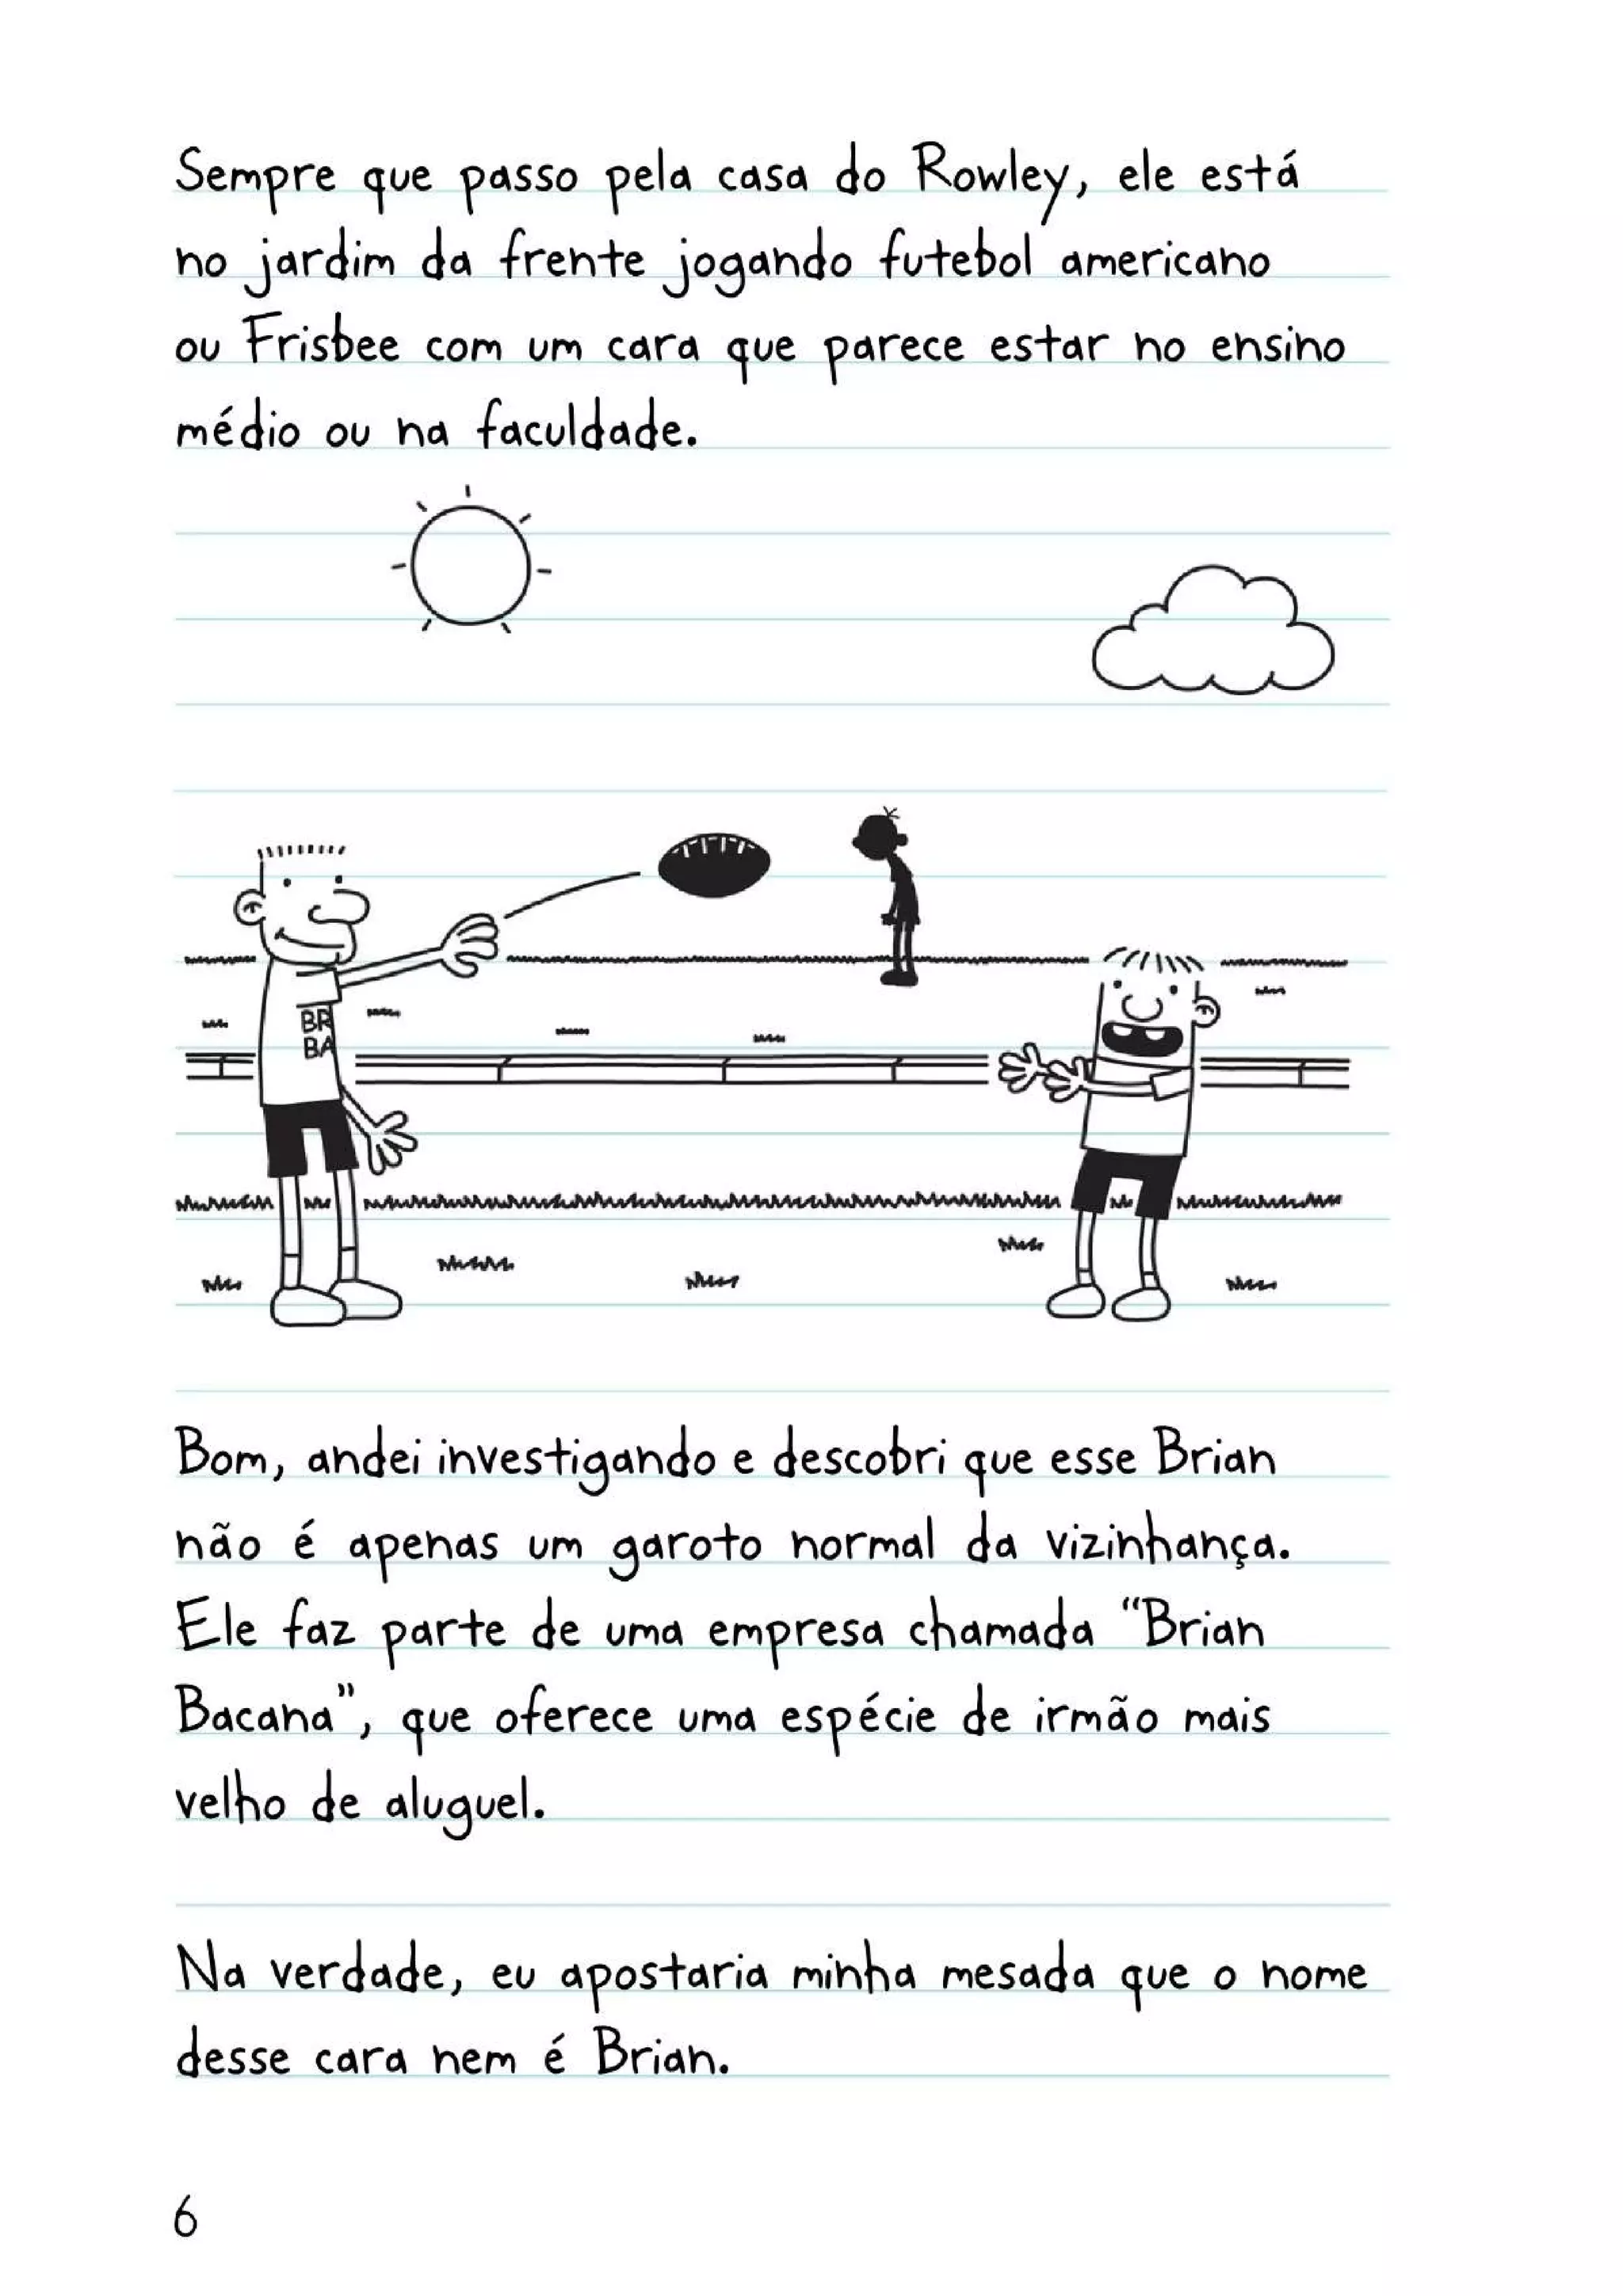 Sempre que passo pela casa do Rowley, ele está
no jardim da frente jogando futebol americano
ou Frisbee com um cara que parece estar no ensino
médio ou na faculdade.
BR
BA
Bom, andei investigando e descobri que esse Brian
não é apenas um garoto normal da vizinhança.
Ele faz parte de uma empresa chamada “Brian
Bacana”, que oferece uma espécie de irmão mais
velho de aluguel.
Na verdade, eu apostaria minha mesada que o nome
desse cara nem é Brian.
6